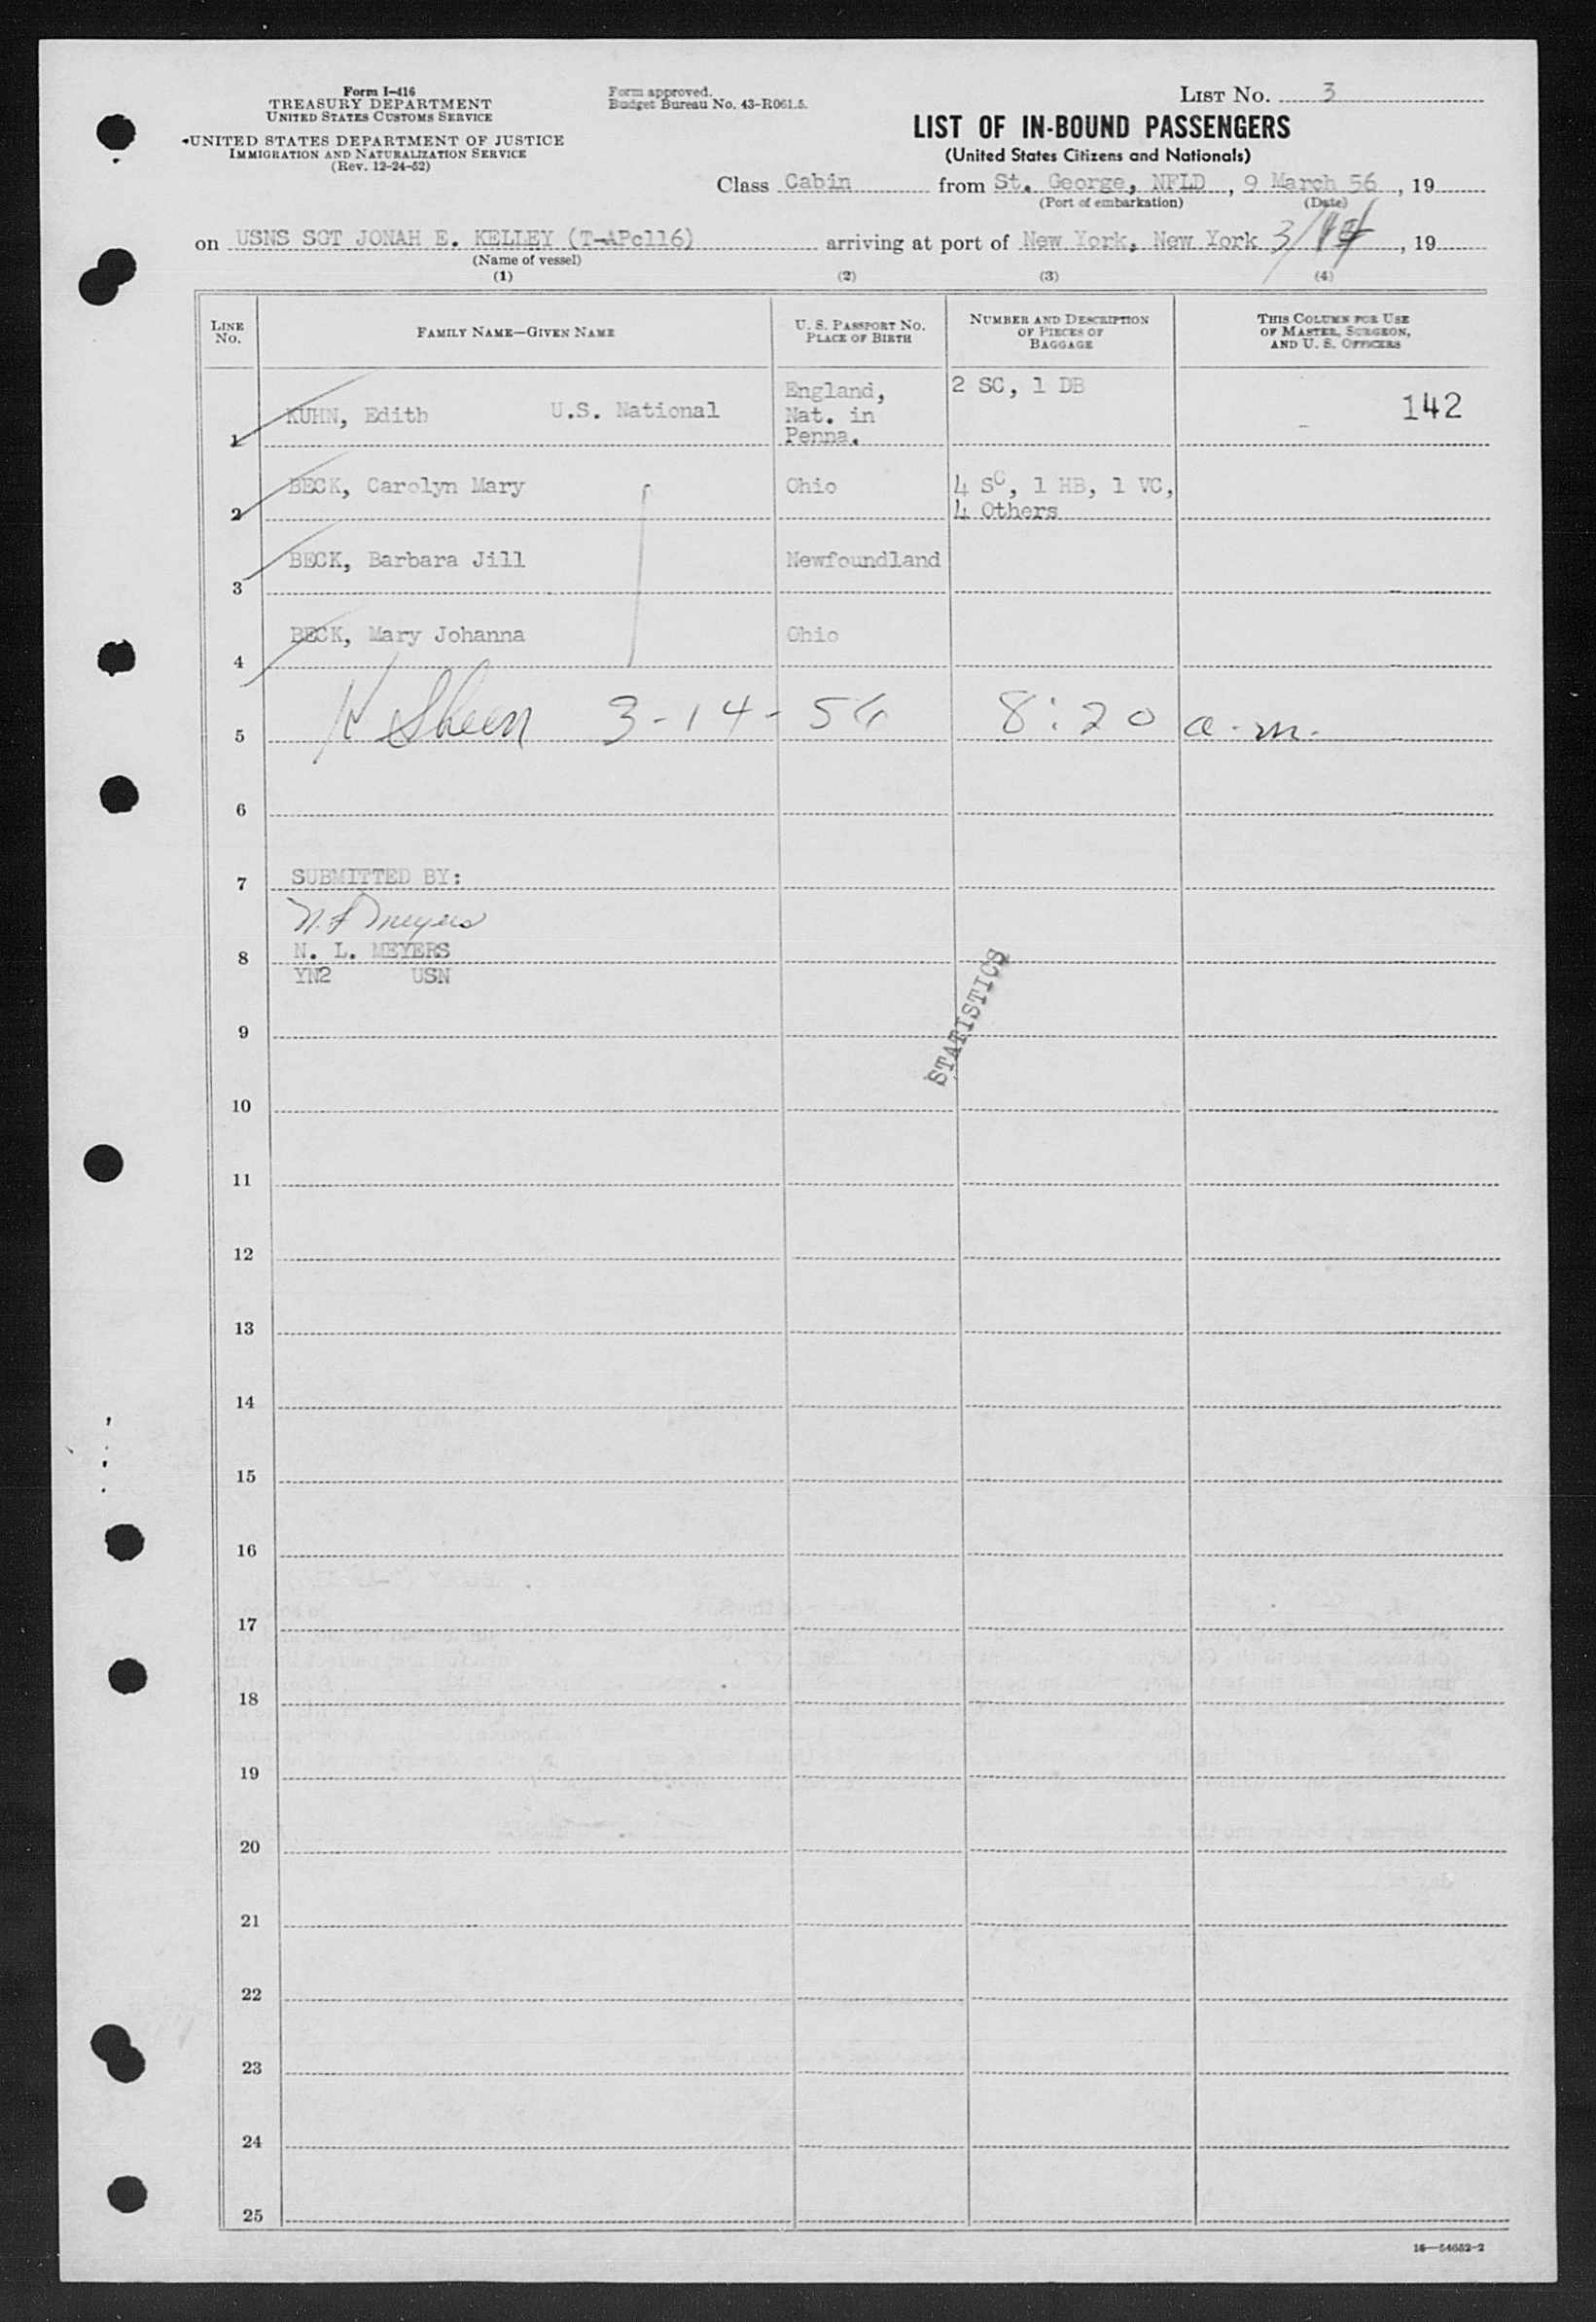 Form I-416
TREASURY DEPARTMENT
UNITED STATES CUSTOMS SERVICE
UNITED STATES DEPARTMENT OF JUSTICE
IMMIGRATION AND NATURALIZATION SERVICE
(Rev. 12-24-52)
Form approved.
Budget Bureau No. 43-R061.5.
LIST NO. 3
LIST OF IN-BOUND PASSENGERS
(United States Citizens and Nationals)
Class Cabin from St. George, NFLD, 9 March 56, 19
(Port of embarkation) (Date)
on USNS SGT JONAH E. KELLEY (T-APc116) arriving at port of New York, New York 3/14, 19
(Name of vessel)
(1) (2) (3) (4)
LINE NO. FAMILY NAME—GIVEN NAME U. S. PASSPORT NO. PLACE OF BIRTH NUMBER AND DESCRIPTION OF PIECES OF BAGGAGE THIS COLUMN FOR USE OF MASTER, SURGEON, AND U. S. OFFICERS
1 KUHN, Edith U.S. National England, Nat. in Penna. 2 SC, 1 DB 142
2 BECK, Carolyn Mary Ohio 4 SC, 1 HB, 1 VC, 4 Others
3 BECK, Barbara Jill Newfoundland
4 BECK, Mary Johanna Ohio
5 Sheen 3-14-56 8:20 a.m.
6
7 SUBMITTED BY:
N. L. Meyers
8 N. L. MEYERS
YN2 USN
STATISTICS
9
10
11
12
13
14
15
16
17
18
19
20
21
22
23
24
25
16—54652-2